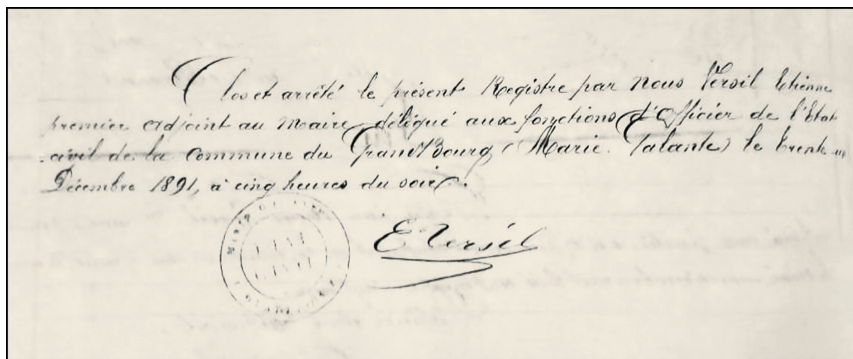 Clos et arrêté le présent Registre par Nous Versil Etienne
premier adjoint au Maire, délégué aux fonctions d'Officier de l'Etat
civil de la Commune du Grand-Bourg (Marie-Galante) le trente-un
Décembre 1891, à cinq heures du soir.
E Versil
ETAT
CIVIL